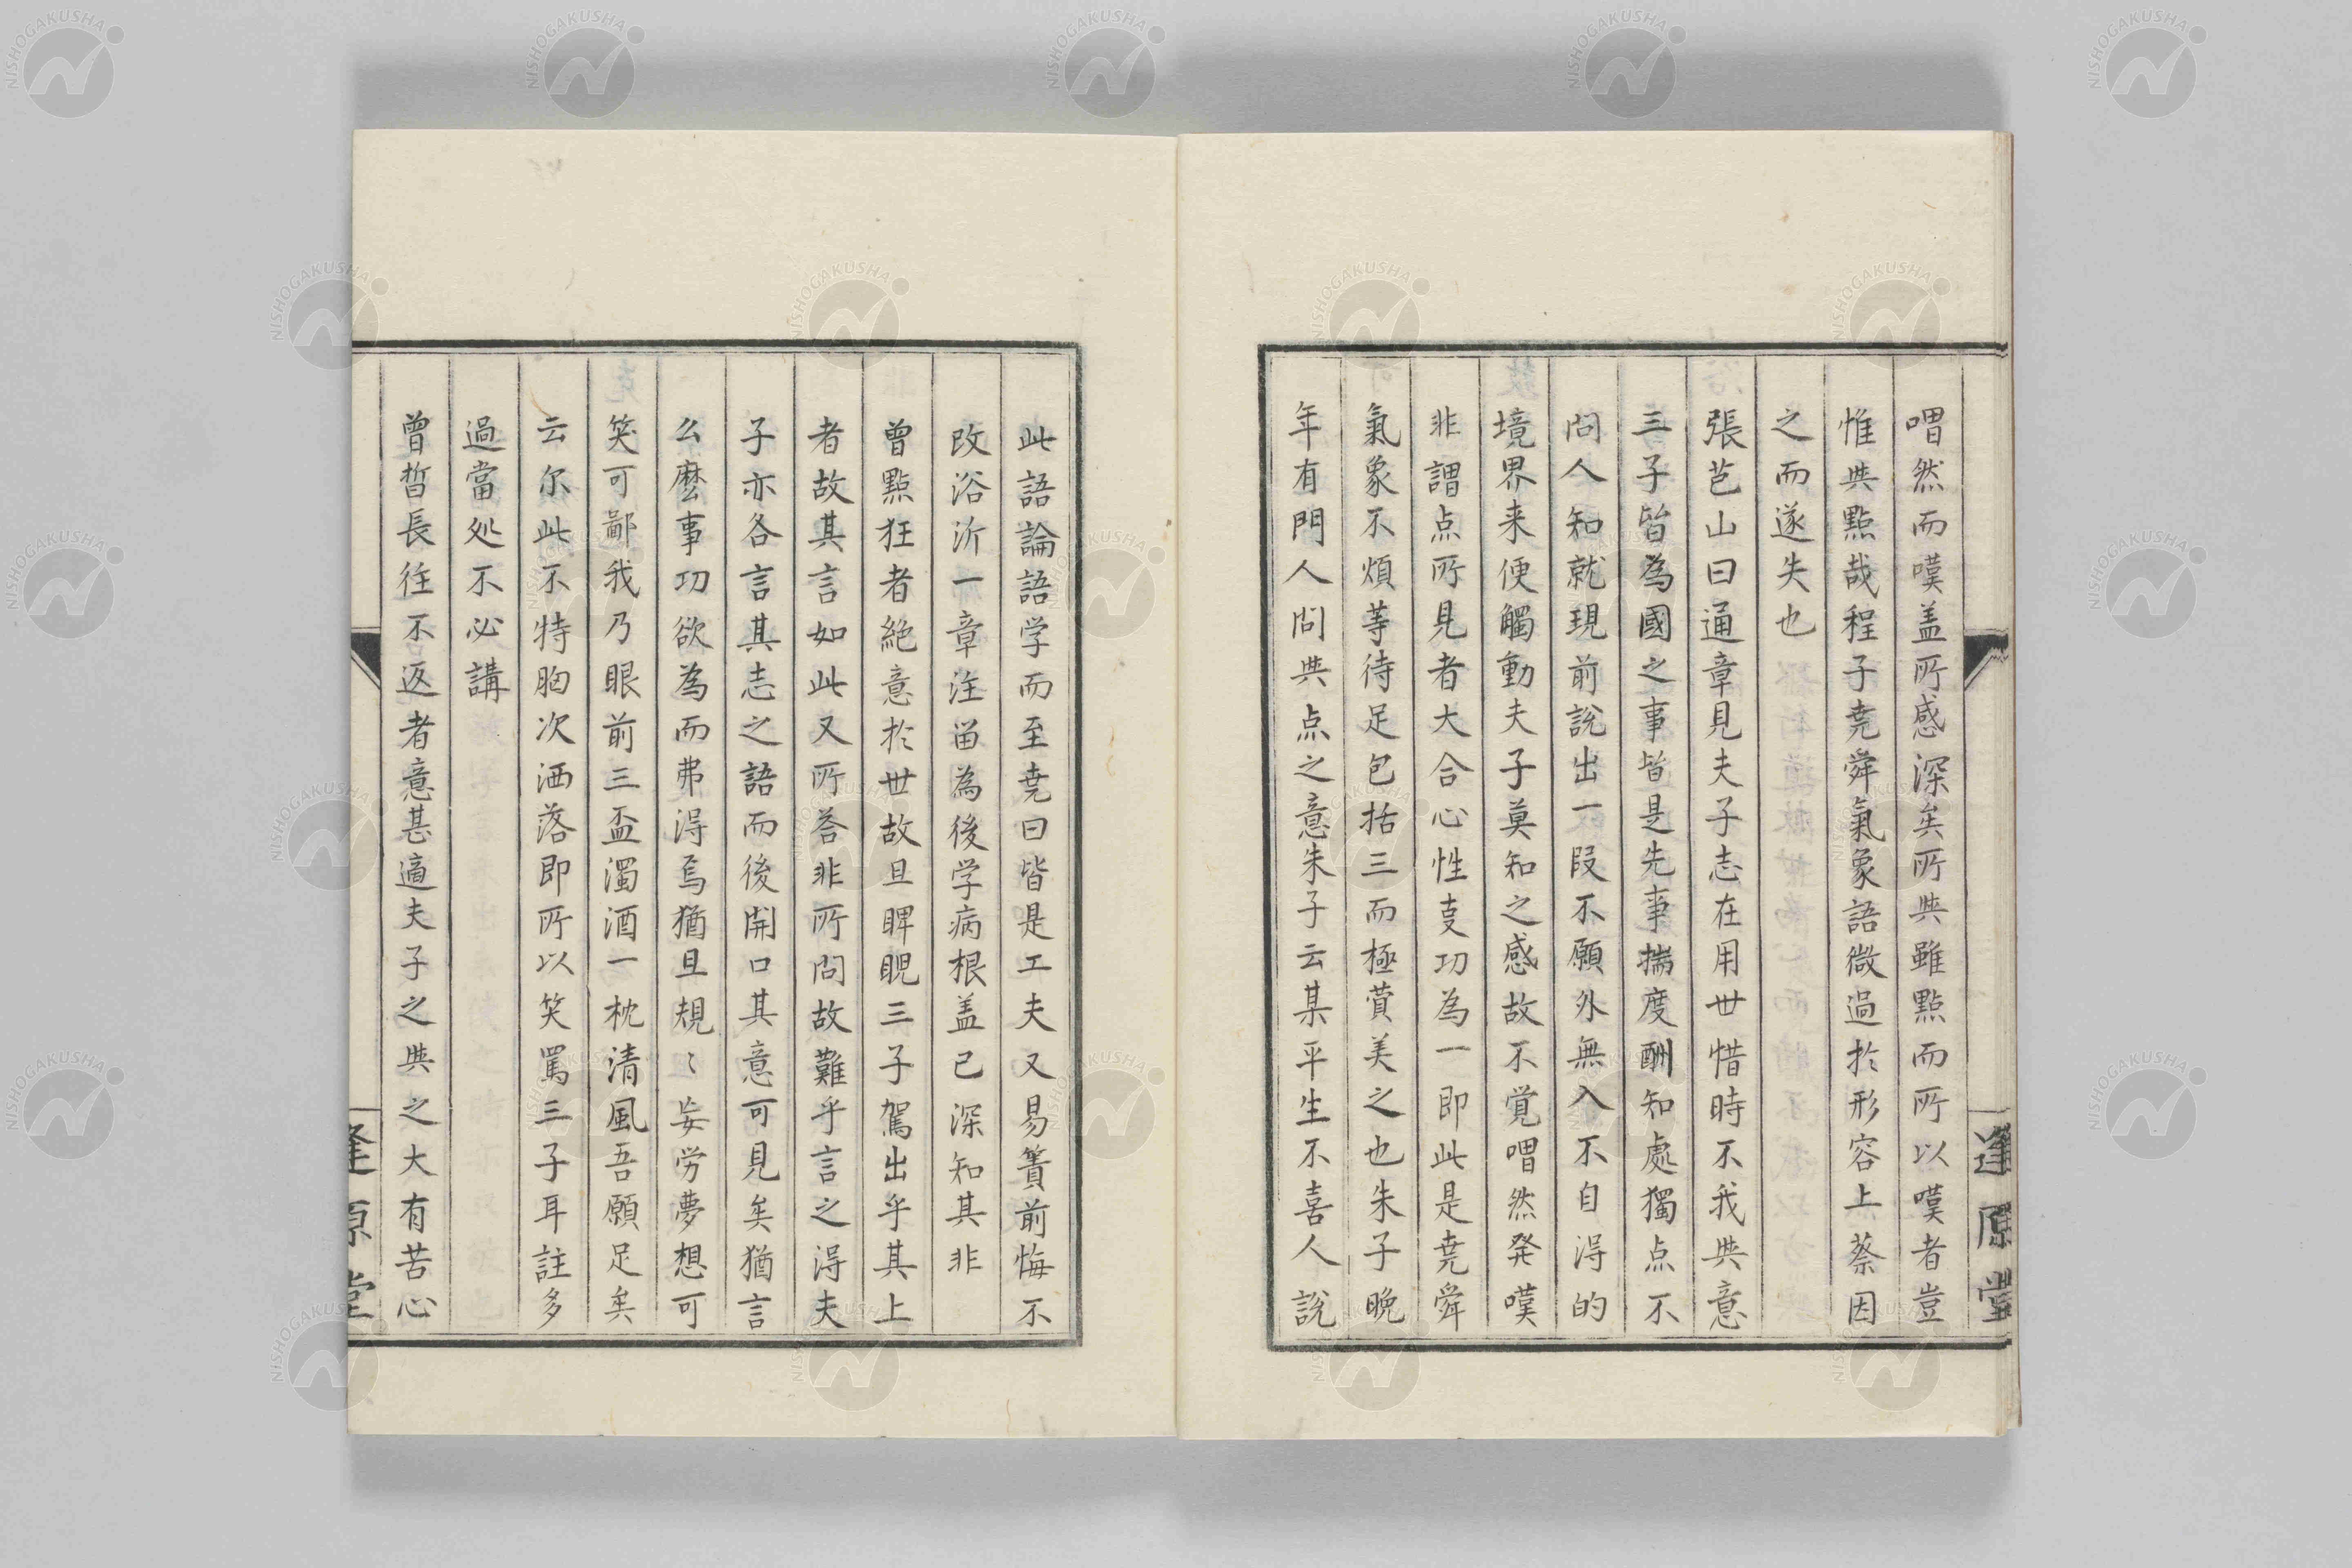 喟然而嘆盖所感深矣所與雖點而所以嘆者豈
惟與點哉程子尭舜氣象語微過於形容上蔡因
之而遂失也
張芑山曰通章見夫子志在用世惜時不我與意
三子皆為國之事皆是先事揣度酬知處獨点不
問人知就現前説出一段不願外無入不自得的
境界来便觸動夫子莫知之感故不覚喟然発嘆
非謂点所見者大合心性叓功為一即此是尭舜
氣象不煩等待足包括三而極賛美之也朱子晚
年有門人問與点之意朱子云某平生不喜人説
此語論語学而至尭曰皆是工夫又易簀前悔不
改浴沂一章注留為後学病根盖已深知其非
曾點狂者絶意於世故且睥睨三子駕出乎其上
者故其言如此又所荅非所問故難乎言之得夫
子亦各言其志之語而後開口其意可見矣猶言
么麼事功欲為而弗得焉猶且規〻妄労夢想可
笑可鄙我乃眼前三盃濁酒一枕清風吾願足矣
云尔此不特胸次洒落即所以笑罵三子耳註多
過當処不必講
曾晳長往不返者意甚適夫子之與之大有苦心
逢原堂
逢原堂
NISHOGAKUSHA